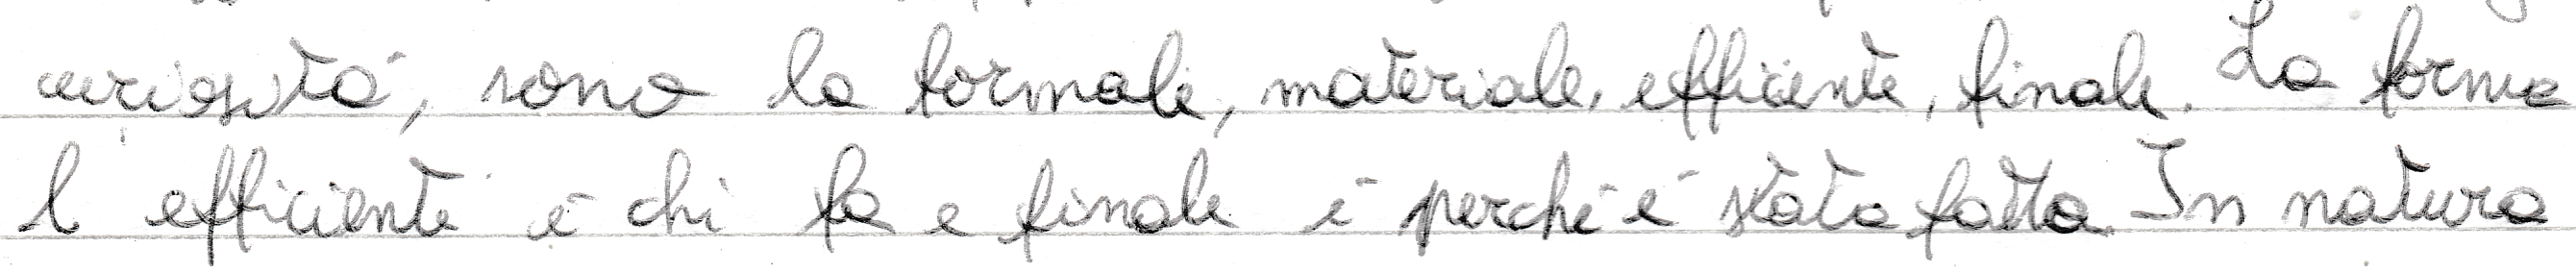 curiosità, sono la formale, materiale, efficiente, finale. La forma
l efficiente è chi fa e finale è perché è stata fatta. In natura